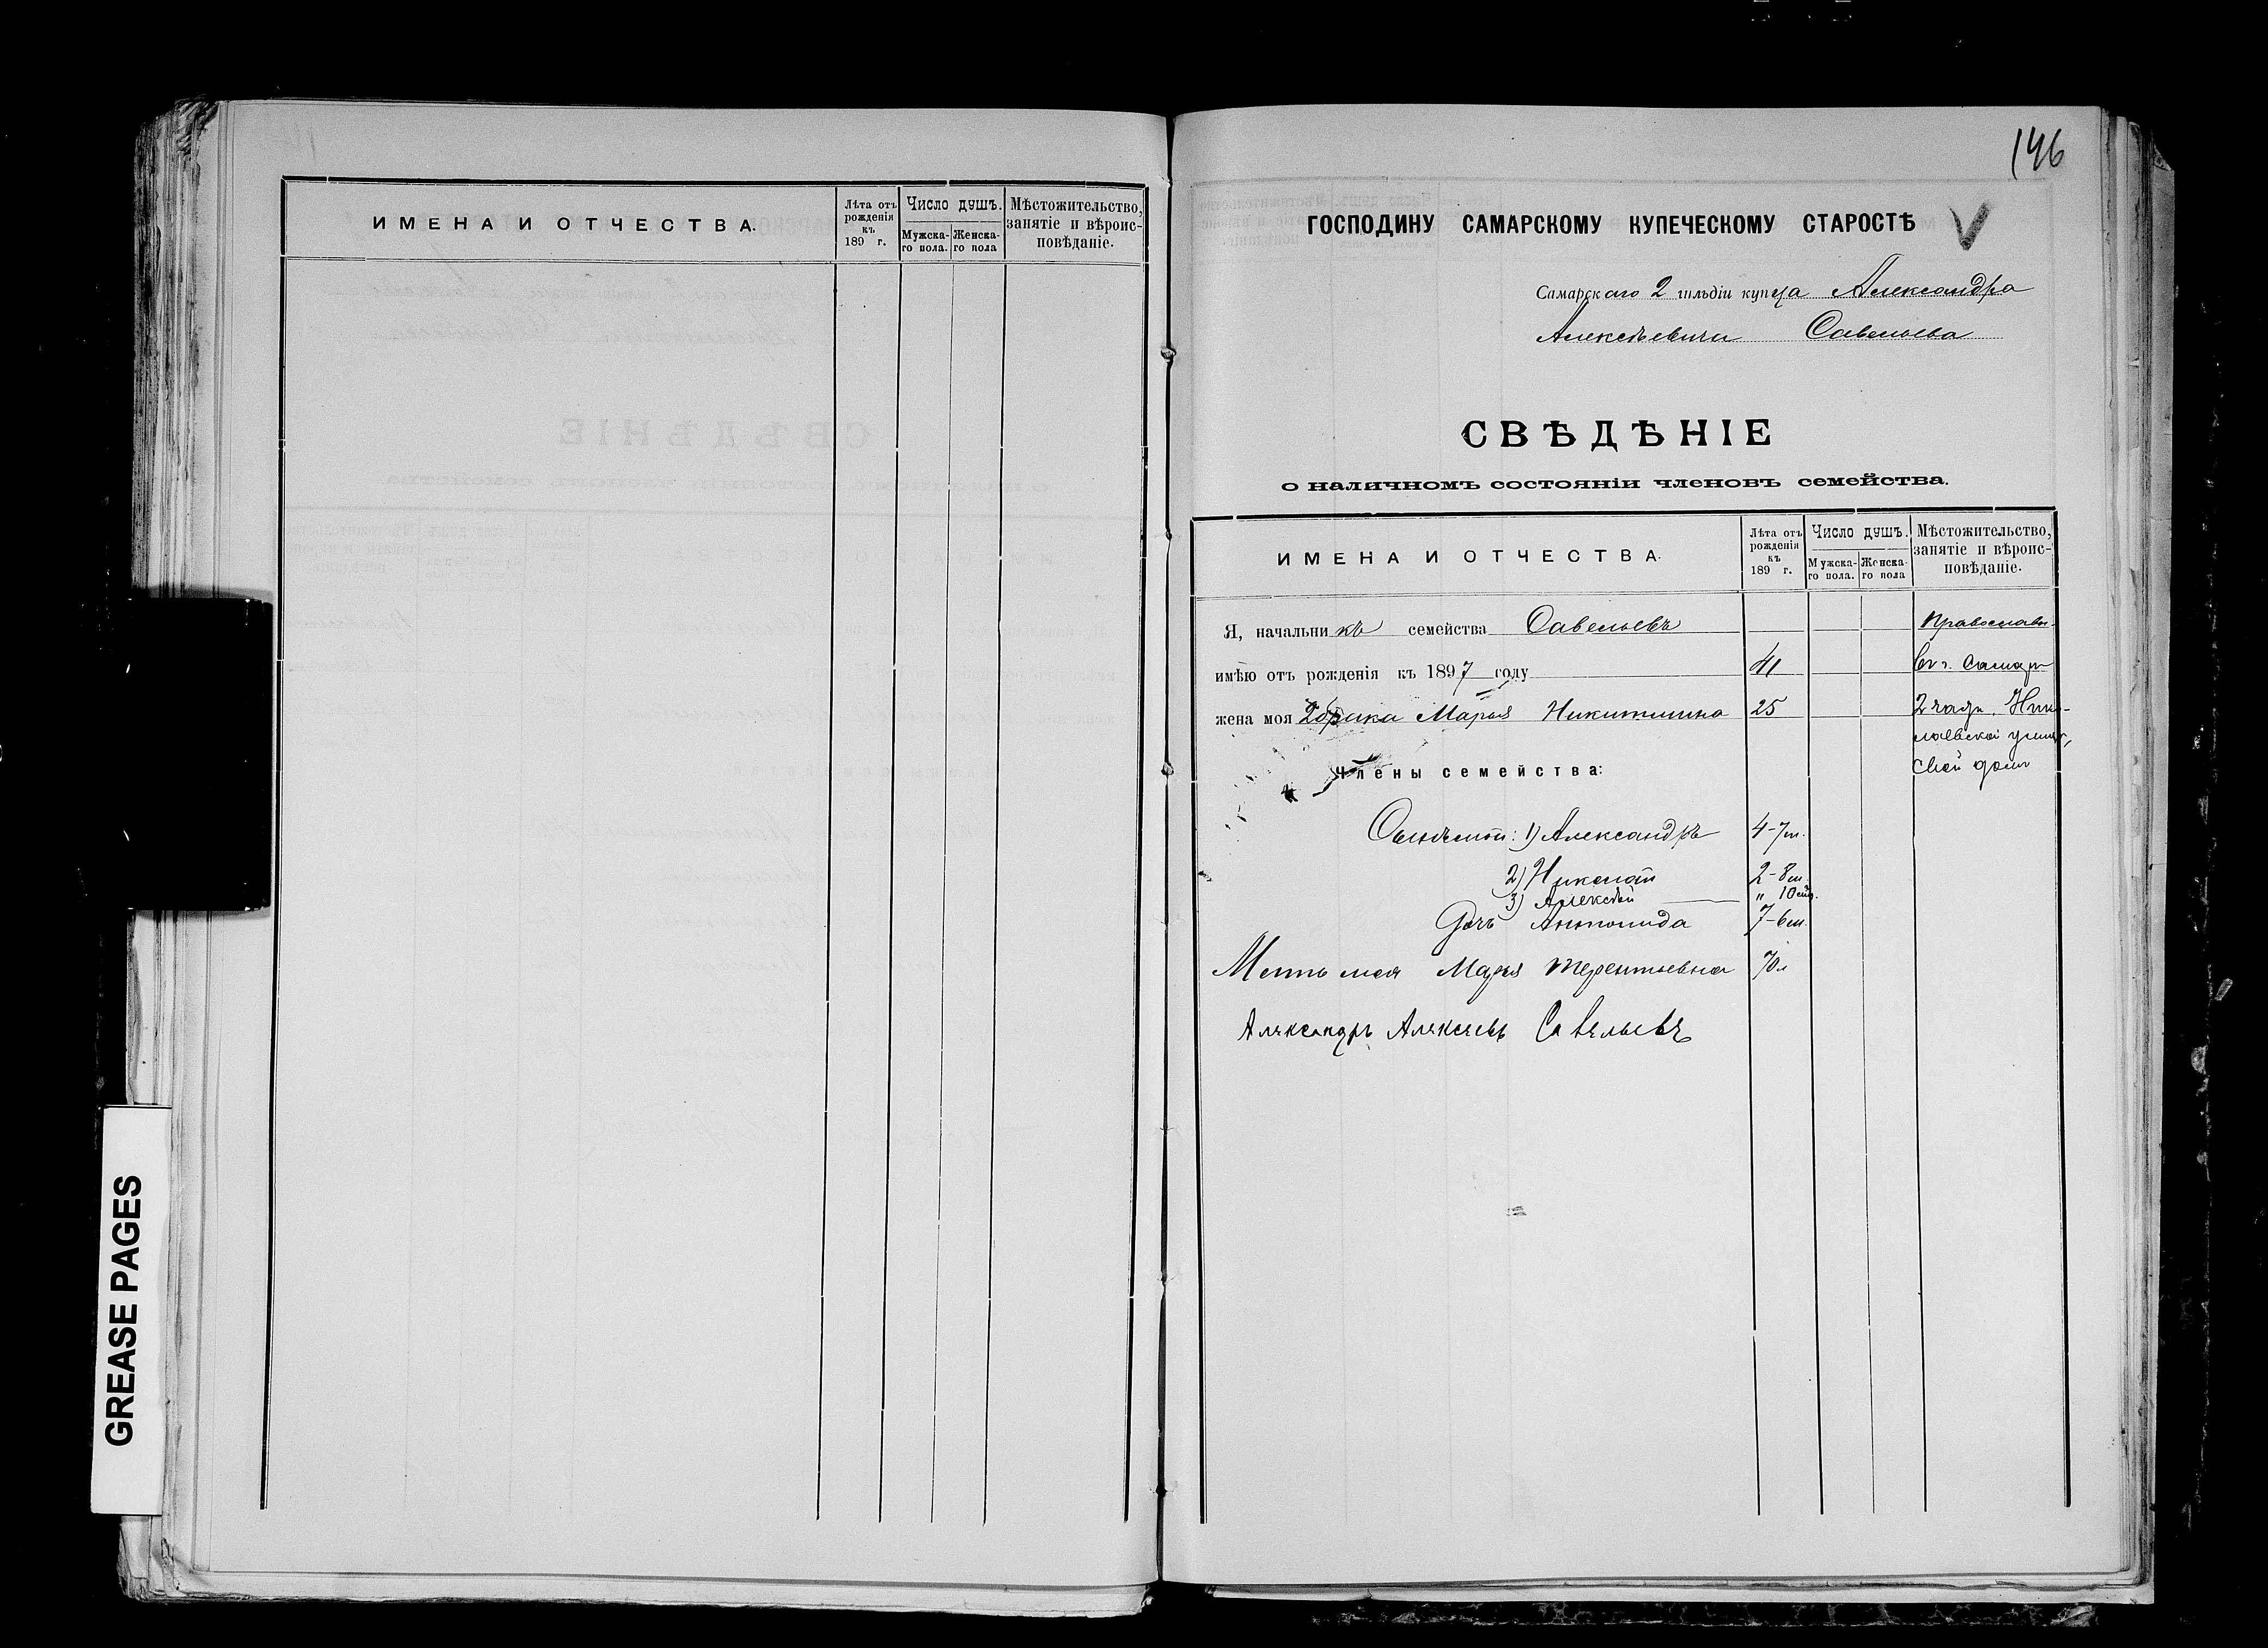 ИМЕНА И ОТЧЕСТВА.
Лѣта отъ рожденія къ 189 г.
Число душъ.
Мужска-го пола.
Женска-го пола
Мѣстожительство, занятіе и вѣроис-повѣданіе.
GREASE PAGES
146
ГОСПОДИНУ САМАРСКОМУ КУПЕЧЕСКОМУ СТАРОСТѢ
Самарскаго 2 гильдіи купца Александра
Алексѣевича Савельева
СВѢДѢНІЕ
о наличномъ состояніи членовъ семейства.
ИМЕНА И ОТЧЕСТВА.
Лѣта отъ рожденія къ 189 г.
Число душъ.
Мужска-го пола.
Женска-го пола
Мѣстожительство, занятіе и вѣроис-повѣданіе.
Я, начальникъ семейства Савельевъ Православн.
имѣю отъ рожденія къ 1897 году 41 Въ г. Самарѣ
жена моя Марья Никитишна 25 2 части, Нико-
лаевской улицѣ,
свой домъ
Члены семейства:
1) Александръ 4-7м.
2) Николай 2-8м.
3) Алексѣй " 10м.
Дочь Антонида 7-6м.
Мать моя Марья Терентьевна 70л
Александръ Алексѣевъ Савельевъ